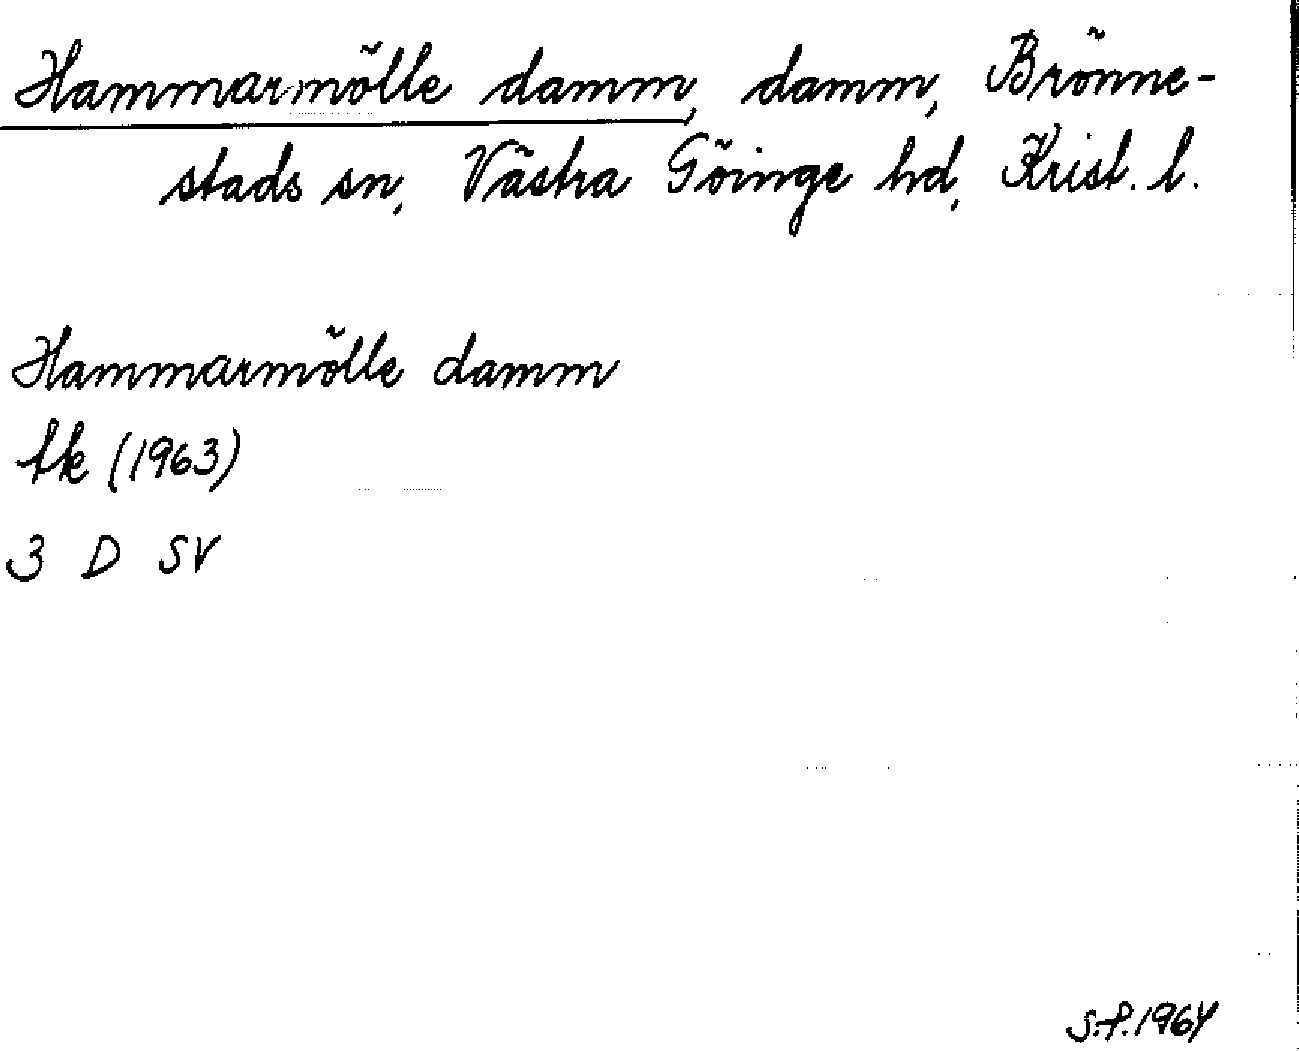 Hammarmölle damm, damm, Brönne-
stads sn, Västra Göinge hd, Krist. l.
Hammarmölle damm
tk (1963)
3 D SV
S.f. 1964